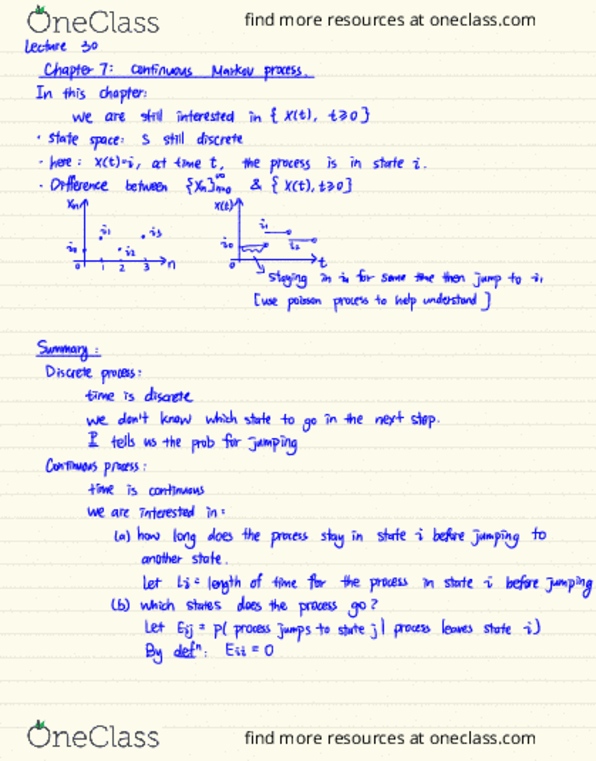 OneClass
find more resources at oneclass.com
Lecture 30
Chapter 7: Continuous Markov process.
In this chapter:
we are still interested in { X(t), t≥0 }
· state space: S still discrete
· here: X(t)=i, at time t, the process is in state i.
· Difference between {Xn}∞n=0 & { X(t), t≥0 }
Xn i0 i1 i2 i3 0 1 2 3 n
X(t) i0 i1 i2 0 t
staying in i0 for some time then jump to i1
[use poisson process to help understand]
Summary:
Discrete process:
time is discrete
we don't know which state to go in the next step.
P tells us the prob for jumping
Continuous process:
time is continuous
we are interested in:
(a) how long does the process stay in state i before jumping to
another state.
Let Li = length of time for the process in state i before jumping
(b) which states does the process go?
Let Eij = P( process jumps to state j | process leaves state i)
By defⁿ: Eii = 0
OneClass
find more resources at oneclass.com